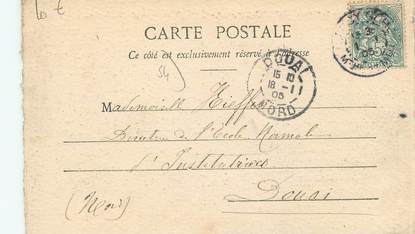 10 €
CARTE POSTALE
Ce côté est exclusivement réservé à l'adresse
54
DOUAI
15 10
18 - 11
05
NORD
Mademoiselle
Directrice de l'Ecole Normale
d'Institutrices
Douai
(Nord)